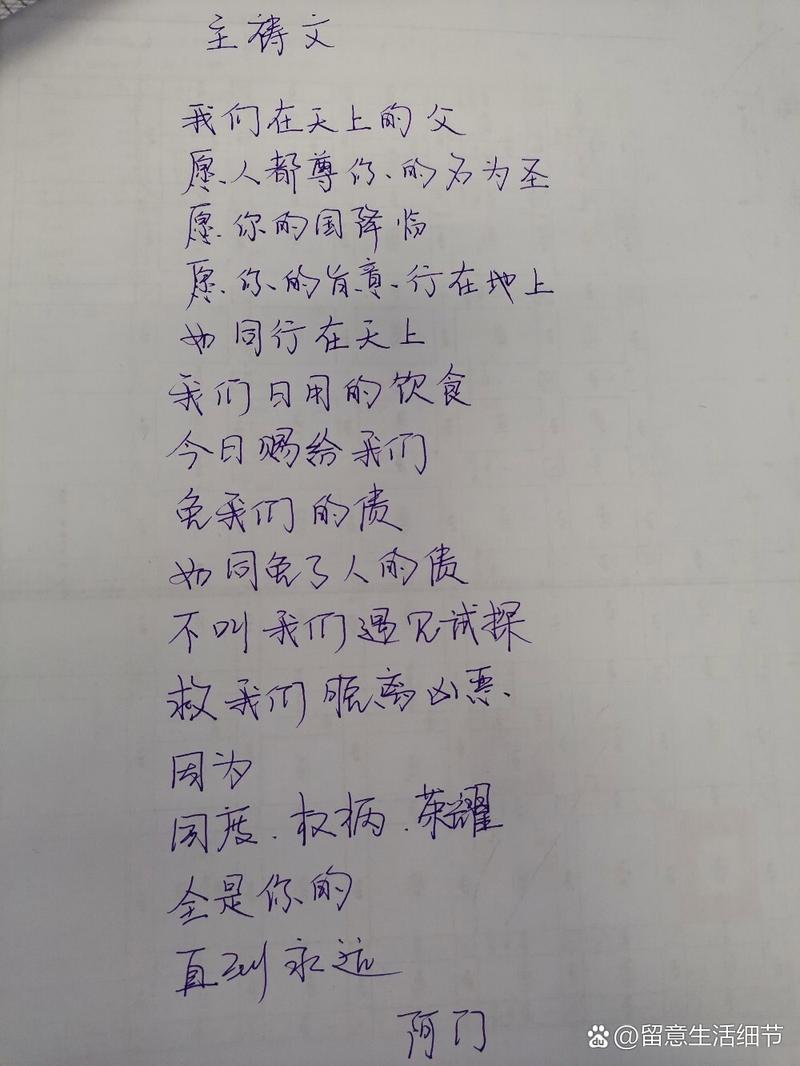 主祷文
我们在天上的父
愿人都尊你的名为圣
愿你的国降临
愿你的旨意行在地上
如同行在天上
我们日用的饮食
今日赐给我们
免我们的债
如同免了人的债
不叫我们遇见试探
救我们脱离凶恶
因为
国度、权柄、荣耀
全是你的
直到永远
阿门
@留意生活细节